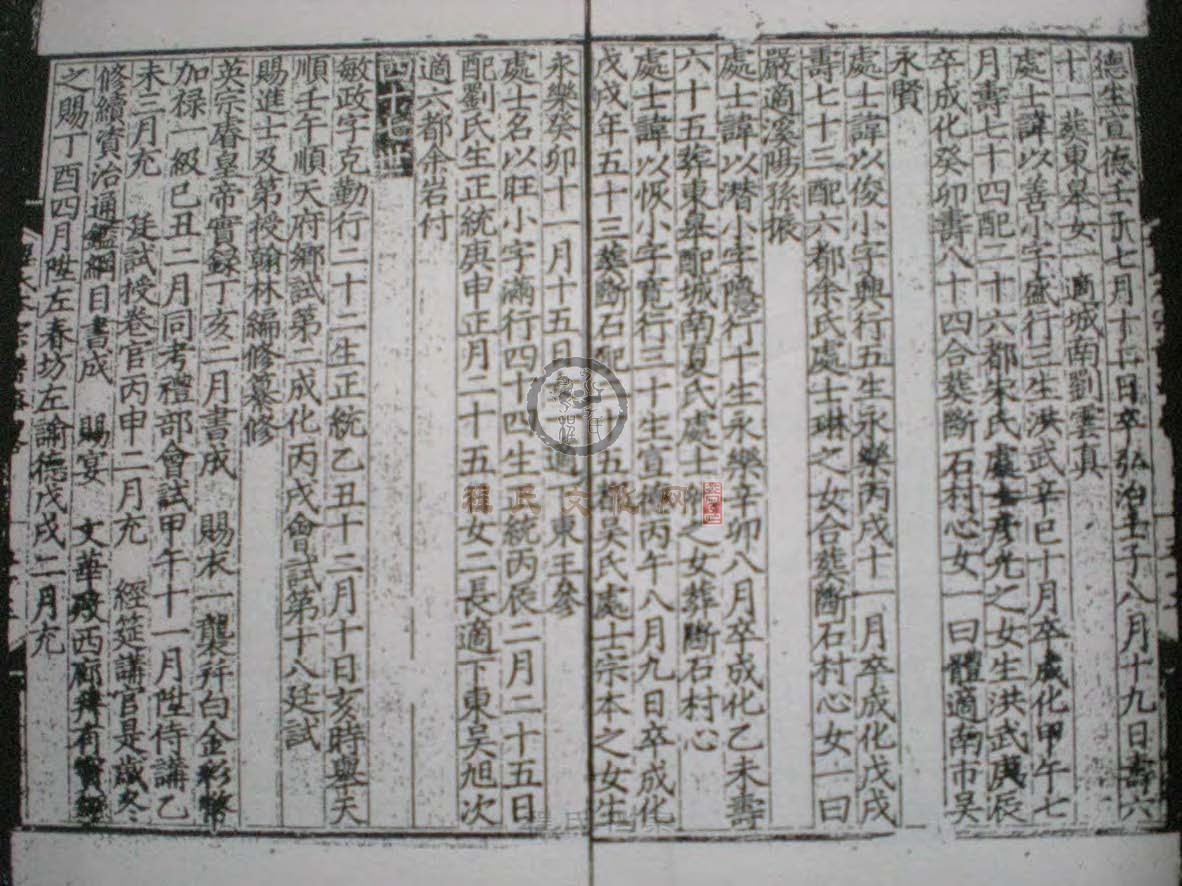 德生宣德壬子七月十日卒弘治壬子八月十九日壽六
十一葬東皋女一適城南劉雲真
處士諱以善小字盛行三生洪武辛巳十月卒成化甲午七
月壽七十四配二十六都朱氏處士彦光之女生洪武庚辰
卒成化癸卯壽八十四合葬斷石村心女一曰體適南市吴
永賢
處士諱以俊小字興行五生永樂丙戌十一月卒成化戊戌
壽七十三配六都余氏處士琳之女合葬斷石村心女一曰
嚴適溪陽孫振
處士諱以潛小字隱行十生永樂辛卯八月卒成化乙未壽
六十五葬東皋配城南夏氏處士之女葬斷石村心
處士諱以恢小字寬行三十生宣德丙午八月九日卒成化
戊戌年五十三葬斷石配二十五都吴氏處士宗本之女生
永樂癸卯十一月十五日女一適下東王參
處士名以旺小字滿行四十四生正統丙辰二月二十五日
配劉氏生正統庚申正月二十五女二長適下東吴旭次
適六都余岩付
四十世
敏政字克勤行二十二生正統乙丑十二月十日亥時舉天
順壬午順天府鄉試第二成化丙戌會試第十八廷試
賜進士及第授翰林編修纂修
英宗睿皇帝實錄丁亥二月書成 賜衣一襲并白金彩幣
加禄一級己丑二月同考禮部會試甲午十一月陞侍講乙
未三月充 廷試授卷官丙申二月充 經筵講官是歲冬
修續資治通鑑綱目書成 賜宴 文華殿西廊并有寶
之賜丁酉四月陞左春坊左諭德戊戌二月充
程氏文化网